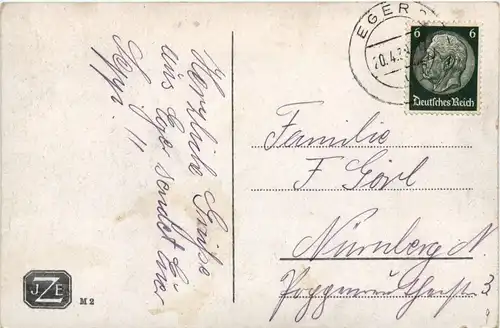 Herzliche Grüße
aus Eger sendet Euer
Sepp.
EGER
20.4.39
6 6
Deutsches Reich
Familie
F Görl
Nürnberg N.
3
JZE
M 2